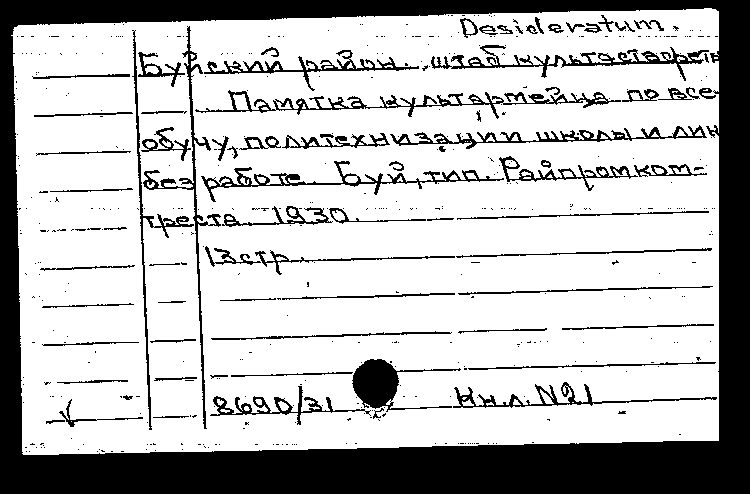 Desideratum.
Буйский район. штаб культэстафеты
Памятка культармейца по все-
обучу, политехнизации школы и лик
без работе. Буй, тип. Райпромком-
треста. 1930.
13 стр.
8690/31 Кн.л. N21